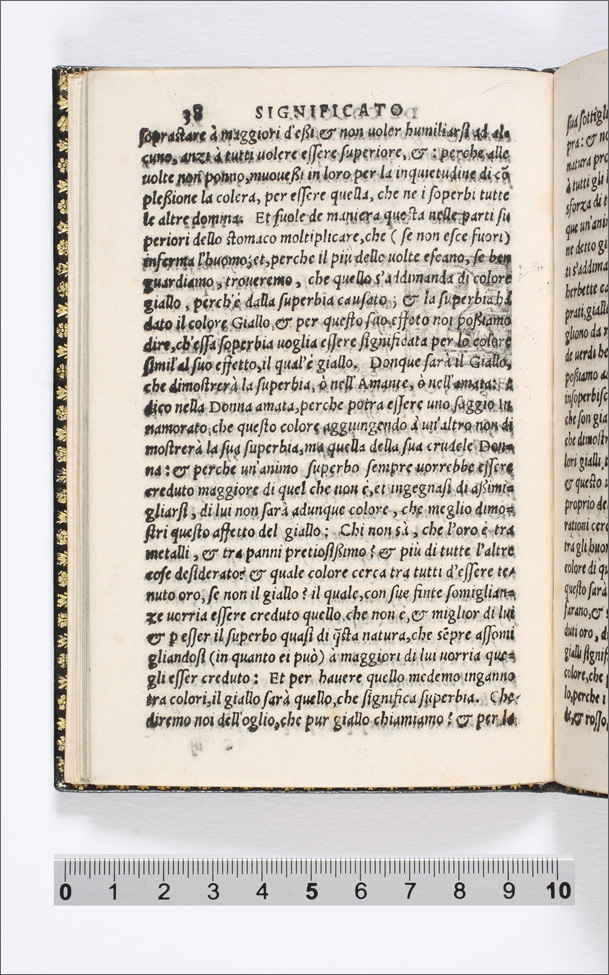 38 SIGNIFICATO
soprastare à maggiori d'eßi & non uoler humiliarsi ad al-
cuno, anzi à tutti uolere eſſere ſuperiore, & : perche alle
uolte non ponno, muoueßi in loro per la inquietudine di cõ
pleßione la colera, per eſſere quella, che ne i ſoperbi tutte
le altre domina. Et ſuole de maniera queſta nelle parti ſu
periori dello ſtomaco moltiplicare, che ( ſe non eſce fuori)
inferma l'huomo; et, perche il piu delle uolte eſcano, ſe ben
guardiamo, troueremo, che quello s'addimanda di colore
giallo, perch'è dalla ſuperbia cauſato; & la ſuperbia hà
dato il colore Giallo, & per queſto ſuo effeto noi poßiamo
dire, ch'eſſa ſoperbia uoglia eſſere ſignificata per lo colore
ſimil'al ſuo effetto, il qual'è giallo. Donque ſarà il Giallo,
che dimoſtrerà la ſuperbia, ò nell'Amante, ò nell'amata:
dico nella Donna amata, perche potra eſſere uno ſaggio in
namorato, che queſto colore aggiungendo à un'altro non di
moſtrerà la ſua ſuperbia, ma quella della ſua crudele Don-
na: & perche un'animo ſuperbo ſempre uorrebbe eſſere
creduto maggiore di quel che non è, et ingegnaſi di aßimi-
gliarſi, di lui non ſarà adunque colore, che meglio dimo-
ſtri queſto affetto del giallo: Chi non sà, che l'oro è tra
metalli, & tra panni pretioſißimo? & più di tutte l'altre
coſe deſiderato? & quale colore cerca tra tutti d'eſſere te-
nuto oro, ſe non il giallo? il quale, con ſue finte ſomiglian-
ze uorria eſſere creduto quello, che non è, & miglior di lui
& p eſſer il ſuperbo quaſi di q̃ſta natura, che sẽpre aſſomi
gliandoſi (in quanto ei può) à maggiori di lui uorria que-
gli eſſer creduto: Et per hauere quello medemo inganno
tra colori, il giallo ſarà quello, che ſignifica ſuperbia. Che
diremo noi dell'oglio, che pur giallo chiamiamo? & per la
ſua ſottigl
pra: & n
natura pro
à tutti gli
sforza di t
que un'ani
ne detto gi
ti s'addiman
herbette ca
prati, giall
gliono da
de uerdi he
poßiamo
inſoperbiſc
che ſon gia
che dimoſtr
lori gialli,
& queſto
proprio de
rationi cer
trà gli huom
colore di qu
queſto ſarà
farano, &
duti oro,
gialli ſignif
colore, che
lo, perche i
& roſſo,
0 1 2 3 4 5 6 7 8 9 10